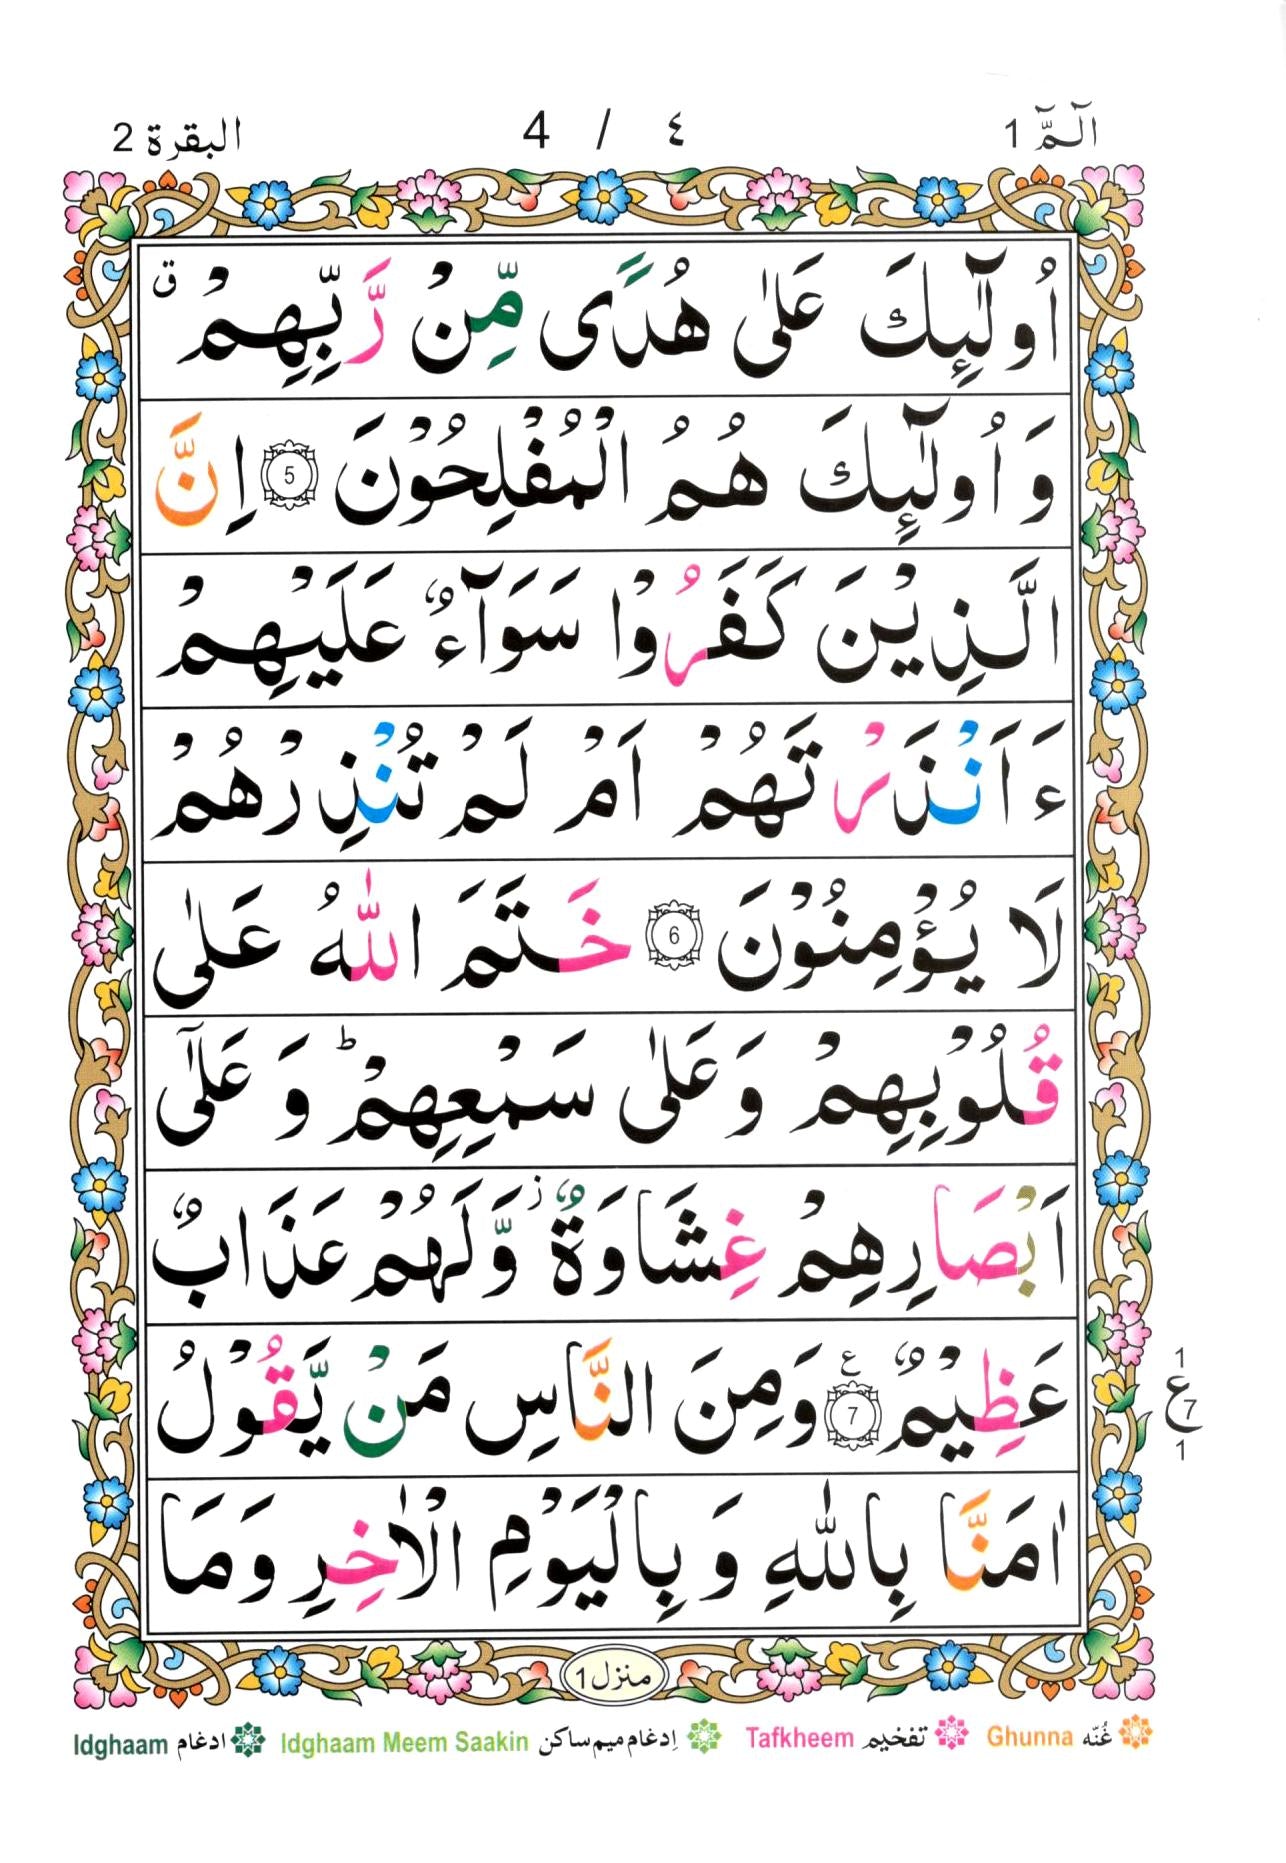 الٓمّٓ 1    ٤ / 4    البقرة 2
اُولٰٓئِكَ عَلٰى هُدًى مِّنْ رَّبِّهِمْ ۗ ق
وَ اُولٰٓئِكَ هُمُ الْمُفْلِحُوْنَ 5 اِنَّ
الَّذِيْنَ كَفَرُوْا سَوَآءٌ عَلَيْهِمْ
ءَاَنْذَرْتَهُمْ اَمْ لَمْ تُنْذِرْهُمْ
لَا يُؤْمِنُوْنَ 6 خَتَمَ اللّٰهُ عَلٰى
قُلُوْبِهِمْ وَعَلٰى سَمْعِهِمْ ؕ وَ عَلٰٓى
اَبْصَارِهِمْ غِشَاوَةٌ ز وَّلَهُمْ عَذَابٌ
عَظِيْمٌ 7 ع وَمِنَ النَّاسِ مَنْ يَّقُوْلُ
1
ع
7
1
اٰمَنَّا بِاللّٰهِ وَ بِالْيَوْمِ الْاٰخِرِ وَمَا
منزل 1
غُنّه Ghunna تفخيم Tafkheem اِدغام ميم ساكن Idghaam Meem Saakin ادغام Idghaam